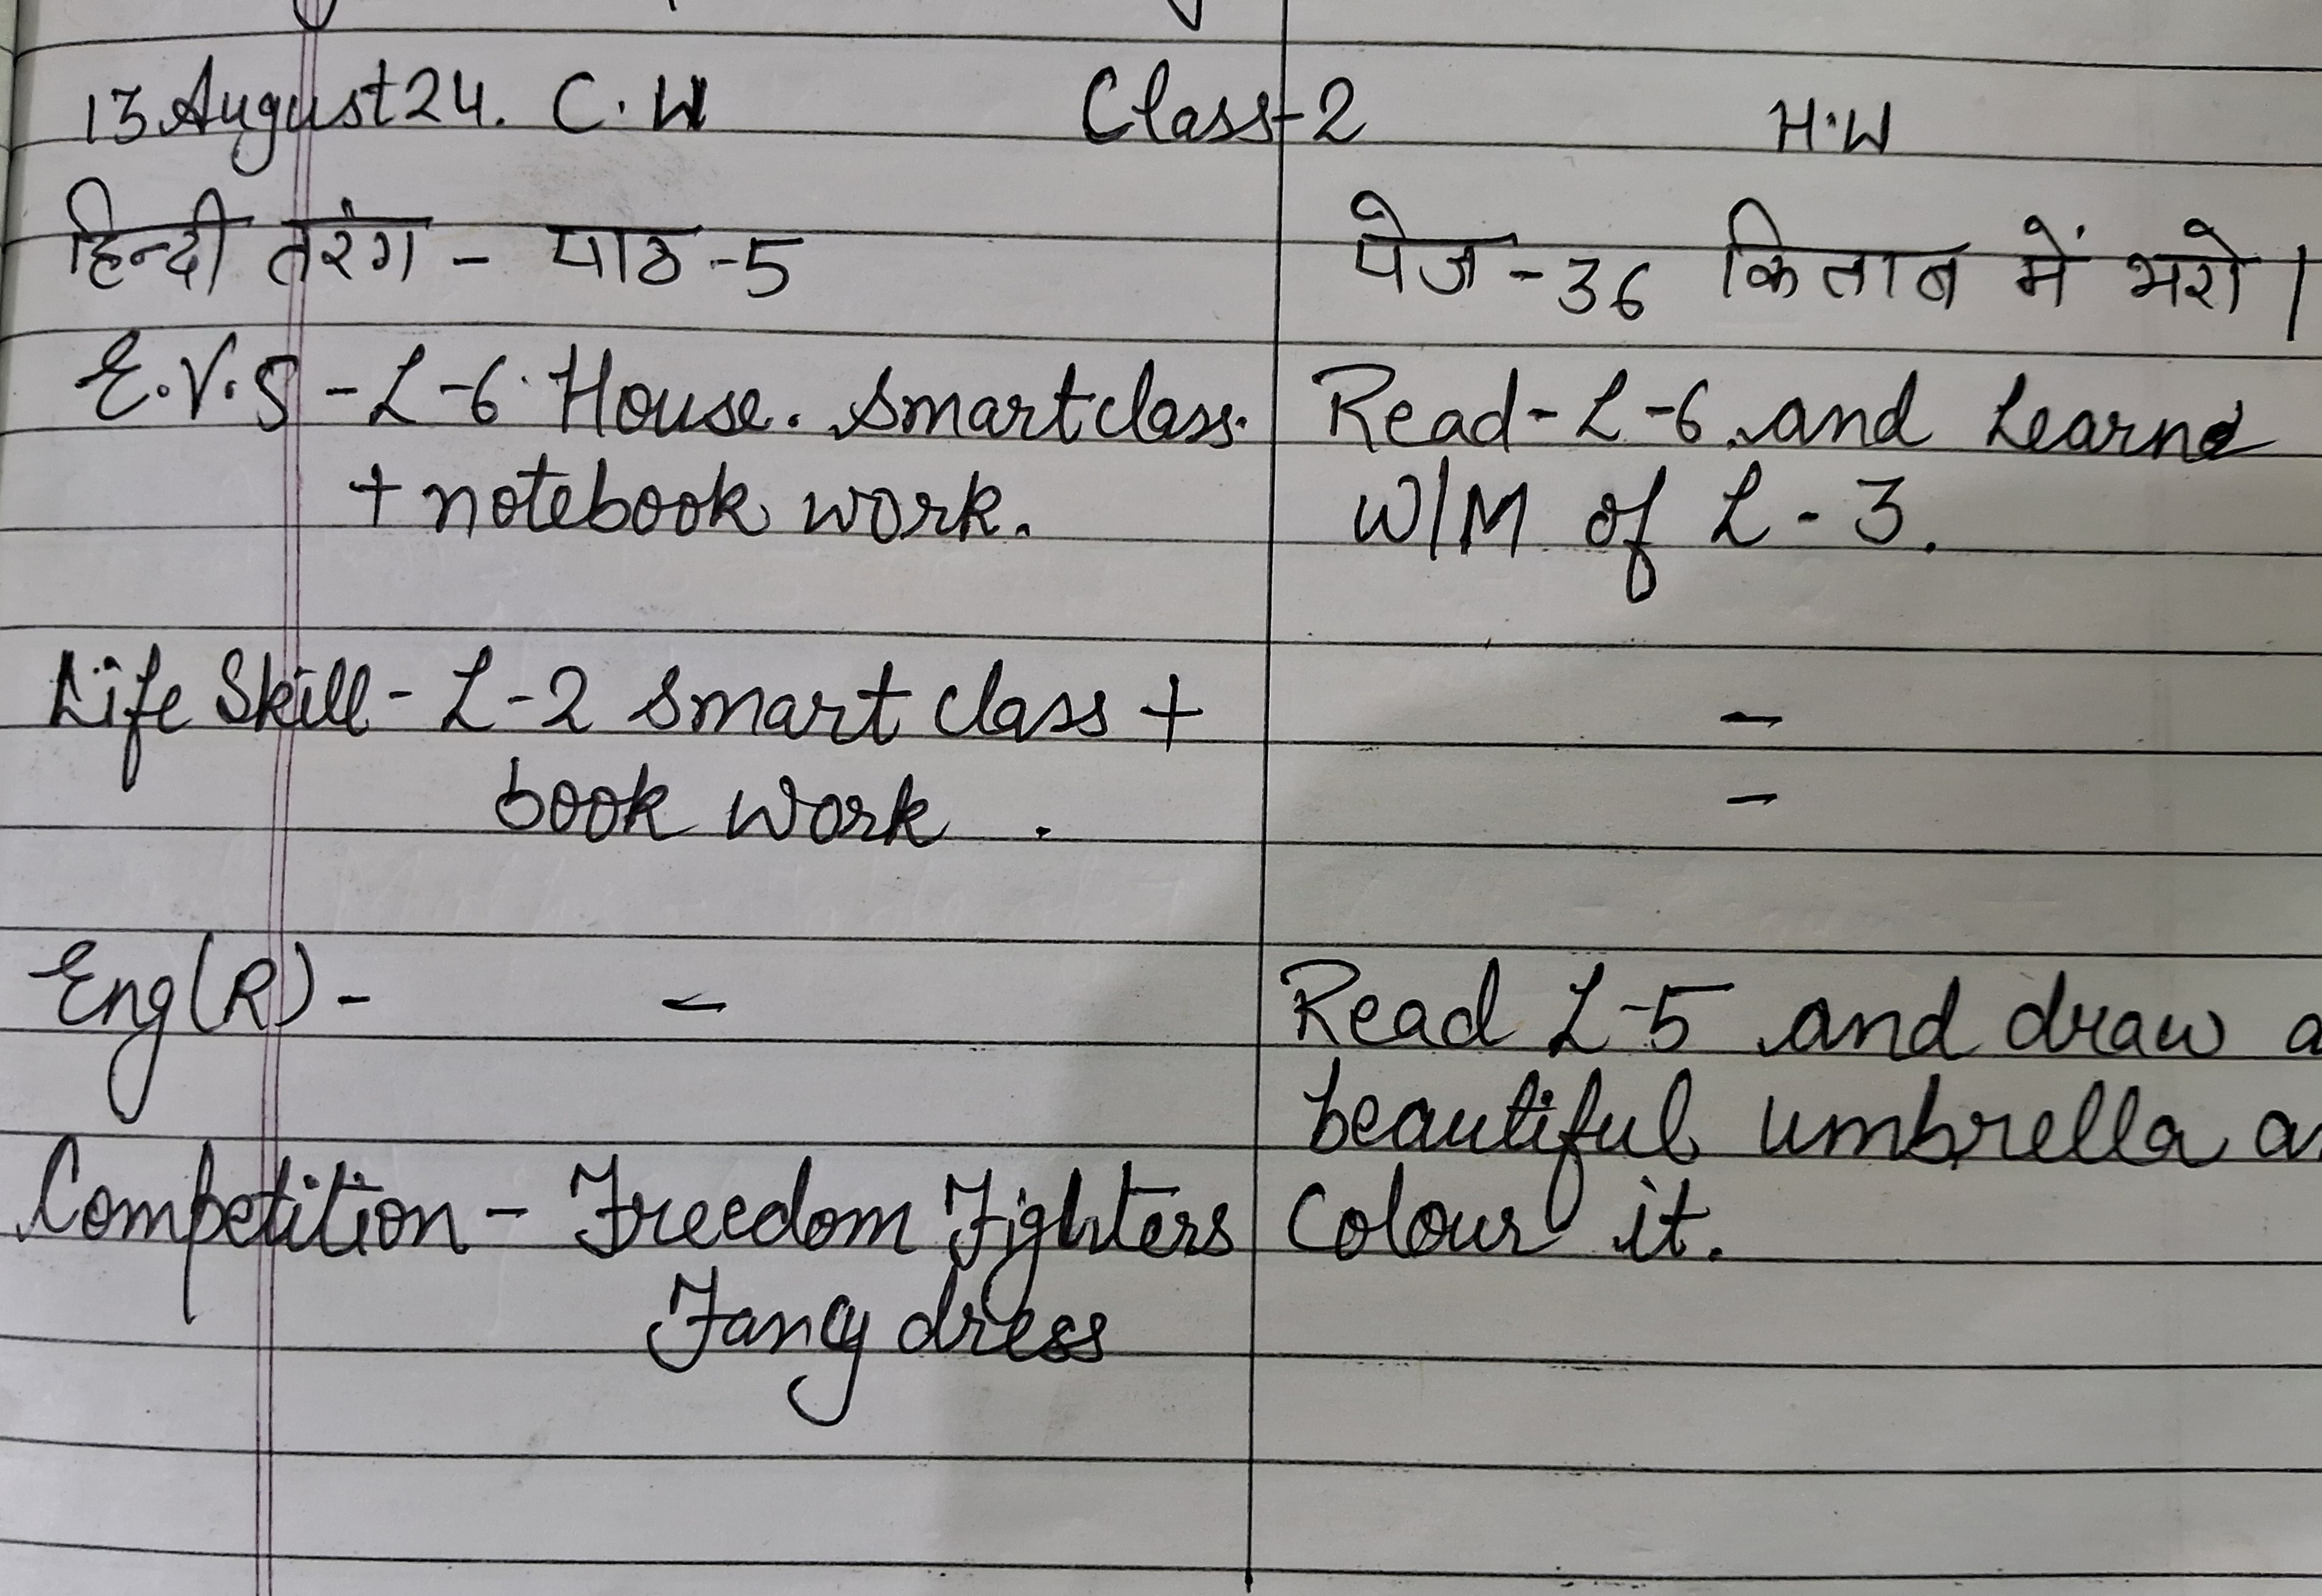 13 August 24. C.W Class-2 H.W
हिन्दी तरंग - पाठ -5 पेज -36 किताब में भरो।
E.V.S - L-6 House. Smart class. Read - L-6 and Learn
+ notebook work. W/M of L-3.
Life Skill - L-2 Smart class + -
book work. -
Eng(R) - - Read L-5 and draw a
beautiful umbrella
Competition - Freedom Fighters Colour it.
Fancy dress